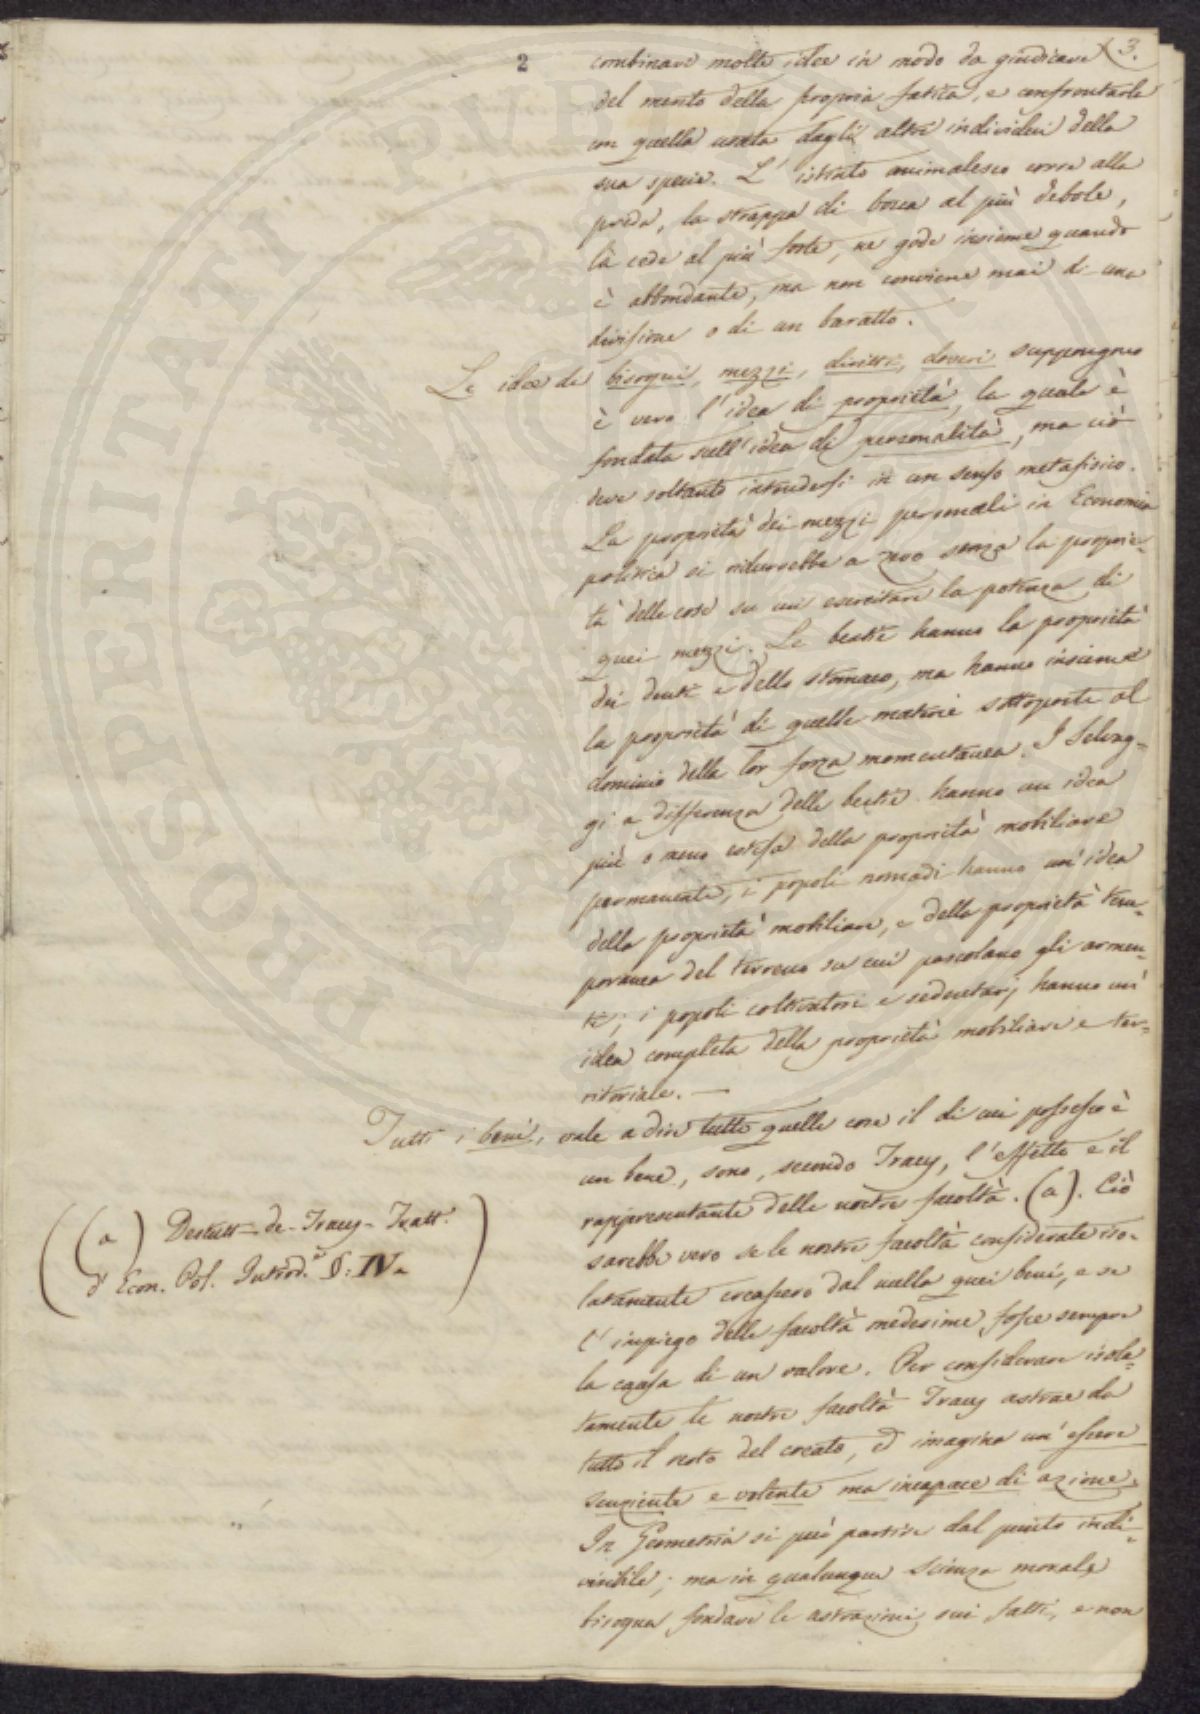 2
3.
combinare molte idee in modo da giudicare
del merito della propria fatica, e confrontarla
con quella usata dagli altri individui della
sua specie. L' istinto animalesco corre alla
preda, la strappa di bocca al più debole,
la cede al più forte, ne gode insieme quando
è abbondante, ma non conviene mai di una
divisione o di un baratto.
Le idee di bisogni, mezzi, diritti, doveri suppongono
è vero l'idea di proprietà, la quale è
fondata sull'idea di personalità, ma ciò
deve soltanto intendersi in un senso metafisico.
La proprietà dei mezzi personali in Economia
politica si ridurrebbe a zero senza la proprie-
tà delle cose su cui esercitare la potenza di
quei mezzi. Le bestie hanno la proprietà
dei denti e dello stomaco, ma hanno insieme
la proprietà di quelle materie sottoposte al
dominio della lor forza momentanea. I Selvag-
gi a differenza delle bestie hanno un idea
più o meno estesa della proprietà mobiliare
permanente, i popoli nomadi hanno un'idea
della proprietà mobiliare, e della proprietà tem-
poranea del terreno su cui pascolano gli armen-
ti; i popoli coltivatori e sedentarj hanno un'
idea completa della proprietà mobiliare e ter-
ritoriale. —
Tutti i beni, vale a dire tutte quelle cose il di cui possesso è
un bene, sono, secondo Tracy, l'effetto e il
rappresentante delle nostre facoltà. (a). Ciò
sarebbe vero se le nostre facoltà considerate iso-
latamente creassero dal nulla quei beni, e se
l'impiego delle facoltà medesime fosse sempre
la causa di un valore. Per considerare isola-
tamente le nostre facoltà Tracy astrae da
tutto il resto del creato, ed imagina un'essere
senziente e volente ma incapace di azione.
In Geometria si può partire dal punto indi-
visibile; ma in qualunque scienza morale
bisogna fondare le astrazioni sui fatti, e non
(a) Destutt-de-Tracy-Tratt.
d'Econ. Pol. Introd.e §: IV.
PROSPERITATI PUBL